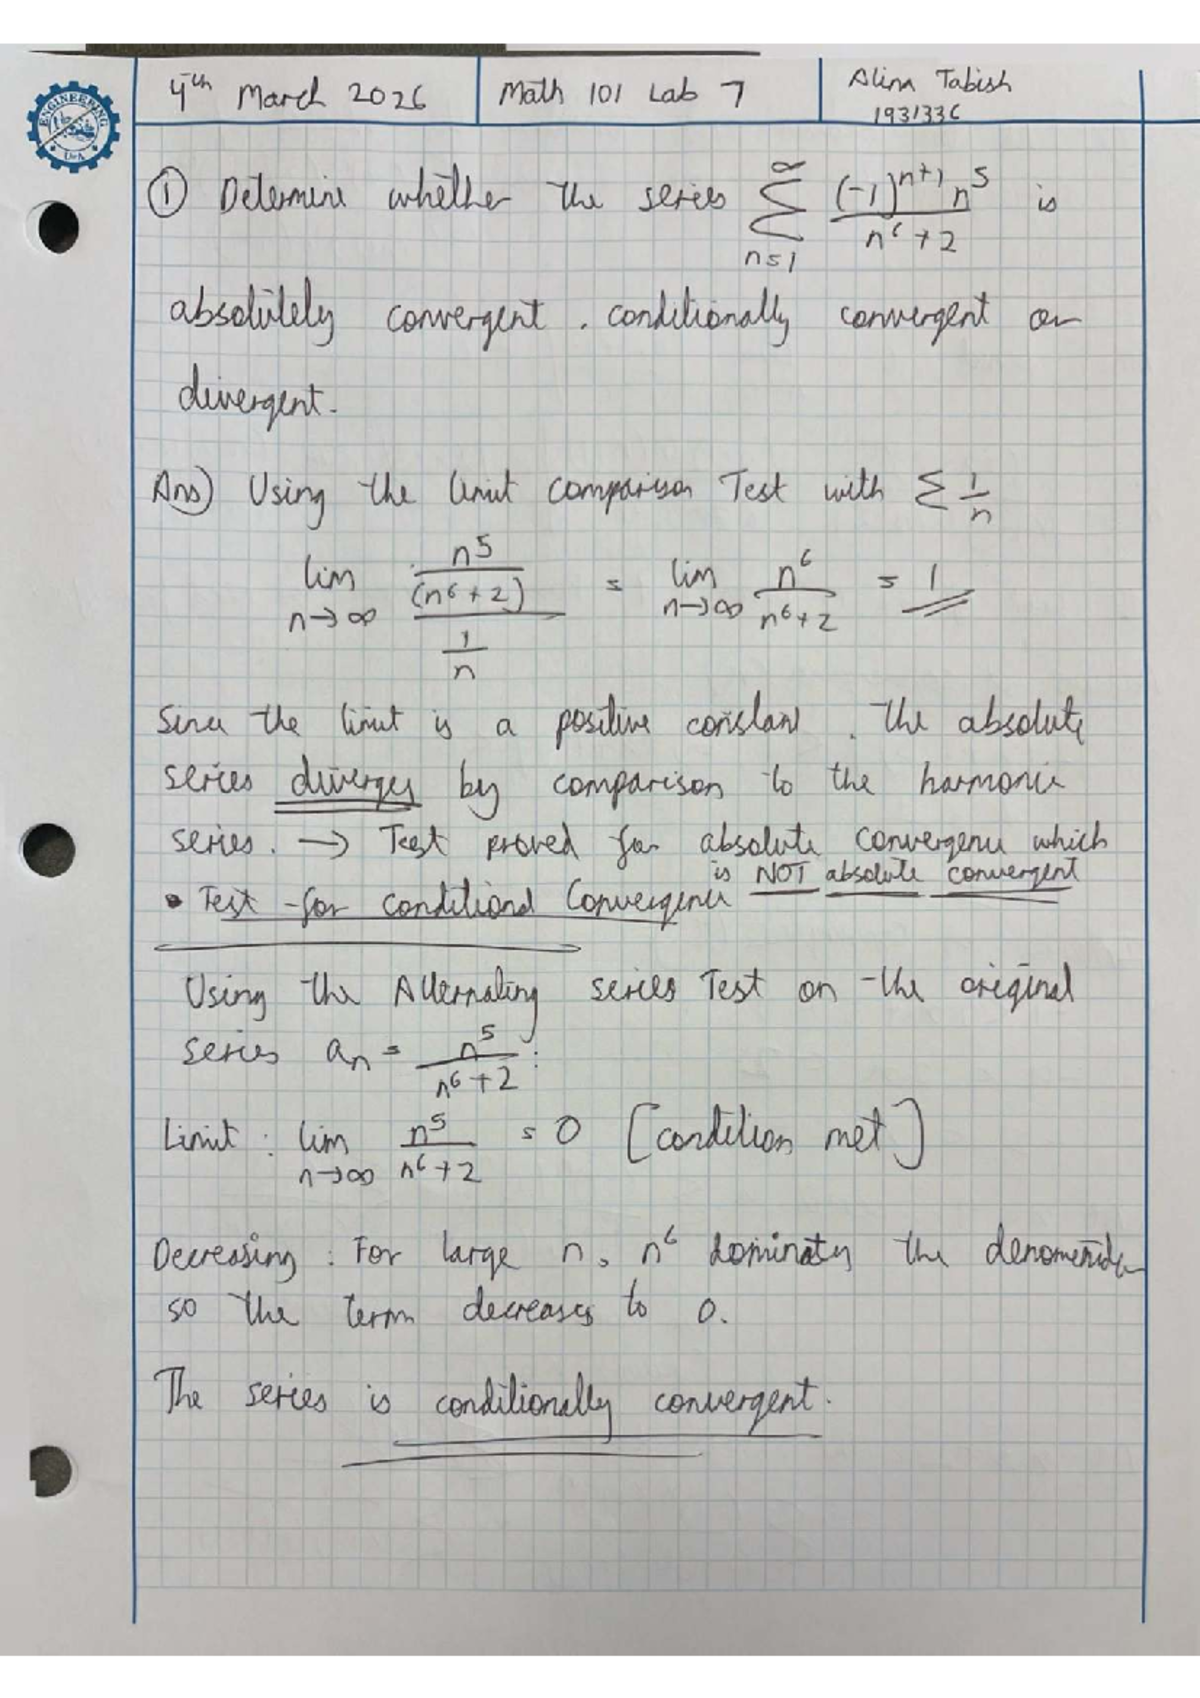 4th March 2026
Math 101 Lab 7
Alina Tabish
1931336
ENGINEERING
U of A
① Determine whether the series ∑_{n=1}^{∞} (-1)^{n+1} n^5 / (n^6 + 2) is
absolutely convergent, conditionally convergent or
divergent.
Ans) Using the limit comparison Test with ∑ 1/n
lim_{n→∞} (n^5 / (n^6 + 2)) / (1/n) = lim_{n→∞} n^6 / (n^6 + 2) = 1
Since the limit is a positive constant, the absolute
series diverges by comparison to the harmonic
series. → Test proved for absolute convergence which
is NOT absolute convergent
• Test for conditional Convergence
Using the Alternating series Test on the original
series an = n^5 / (n^6 + 2) :
Limit : lim_{n→∞} n^5 / (n^6 + 2) = 0 [condition met]
Decreasing : For large n, n^6 dominates the
so the term decreases to 0.
The series is conditionally convergent.